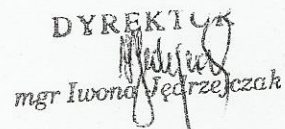 DYREKTOR
mgr Iwona Jędrzejczak